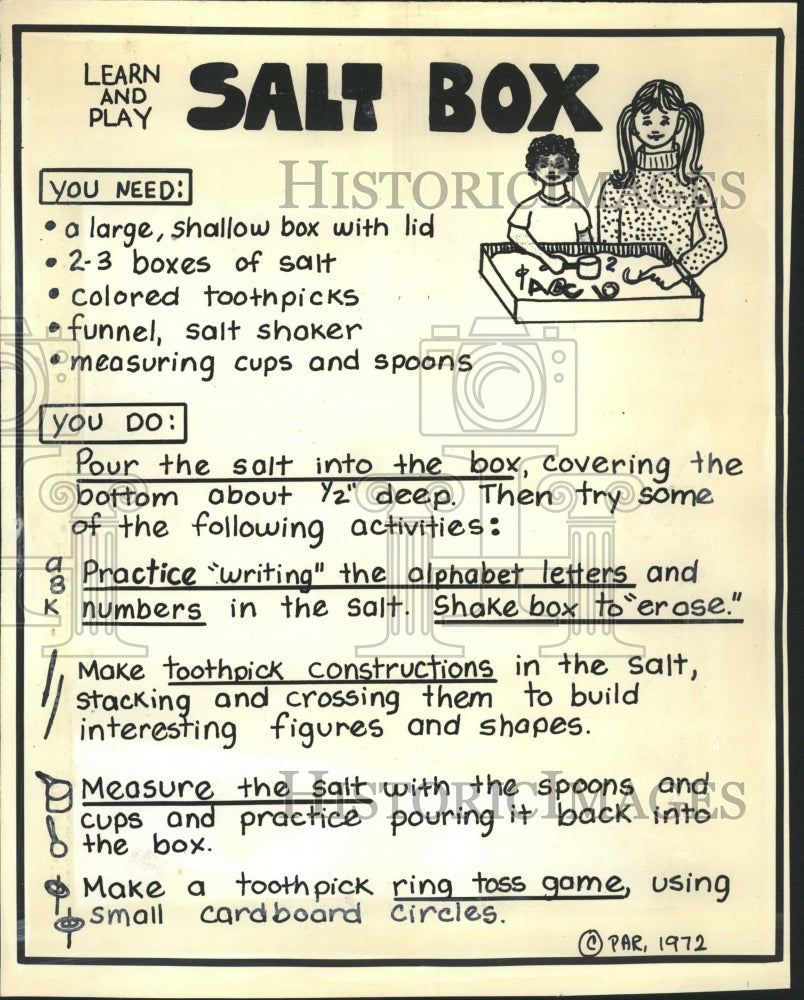 LEARN
AND
PLAY
SALT BOX
YOU NEED:
• a large, shallow box with lid
• 2-3 boxes of salt
• colored toothpicks
• funnel, salt shaker
• measuring cups and spoons
YOU DO:
Pour the salt into the box, covering the
bottom about ½" deep. Then try some
of the following activities:
a
B
K
Practice "writing" the alphabet letters and
numbers in the salt. Shake box to "erase."
Make toothpick constructions in the salt,
stacking and crossing them to build
interesting figures and shapes.
Measure the salt with the spoons and
cups and practice pouring it back into
the box.
Make a toothpick ring toss game, using
small cardboard circles.
© PAR, 1972
HISTORIC IMAGES
HISTORIC IMAGES
2
ABC